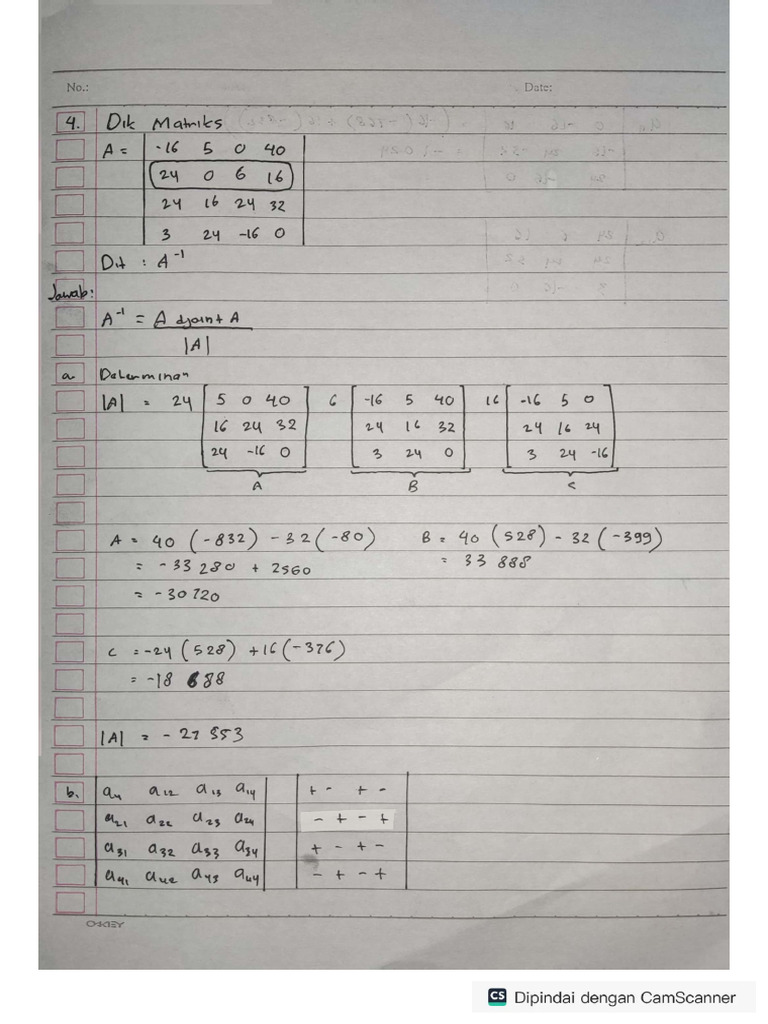 No.: Date:
4. Dik Matriks
A = -16 5 0 40
24 0 6 16
24 16 24 32
3 24 -16 0
Dit : A⁻¹
Jawab:
A⁻¹ = A djoint A
|A|
a Determinan
|A| = 24 5 0 40 6 -16 5 40 16 -16 5 0
16 24 32 24 16 32 24 16 24
24 -16 0 3 24 0 3 24 -16
A B C
A = 40 (-832) - 32 (-80) B = 40 (528) - 32 (-399)
= -33 280 + 2560 = 33 888
= -30 720
C = -24 (528) + 16 (-376)
= -18 688
|A| = -27 553
b. a₁₁ a₁₂ a₁₃ a₁₄ + - + -
a₂₁ a₂₂ a₂₃ a₂₄ - + - +
a₃₁ a₃₂ a₃₃ a₃₄ + - + -
a₄₁ a₄₂ a₄₃ a₄₄ - + - +
CS Dipindai dengan CamScanner